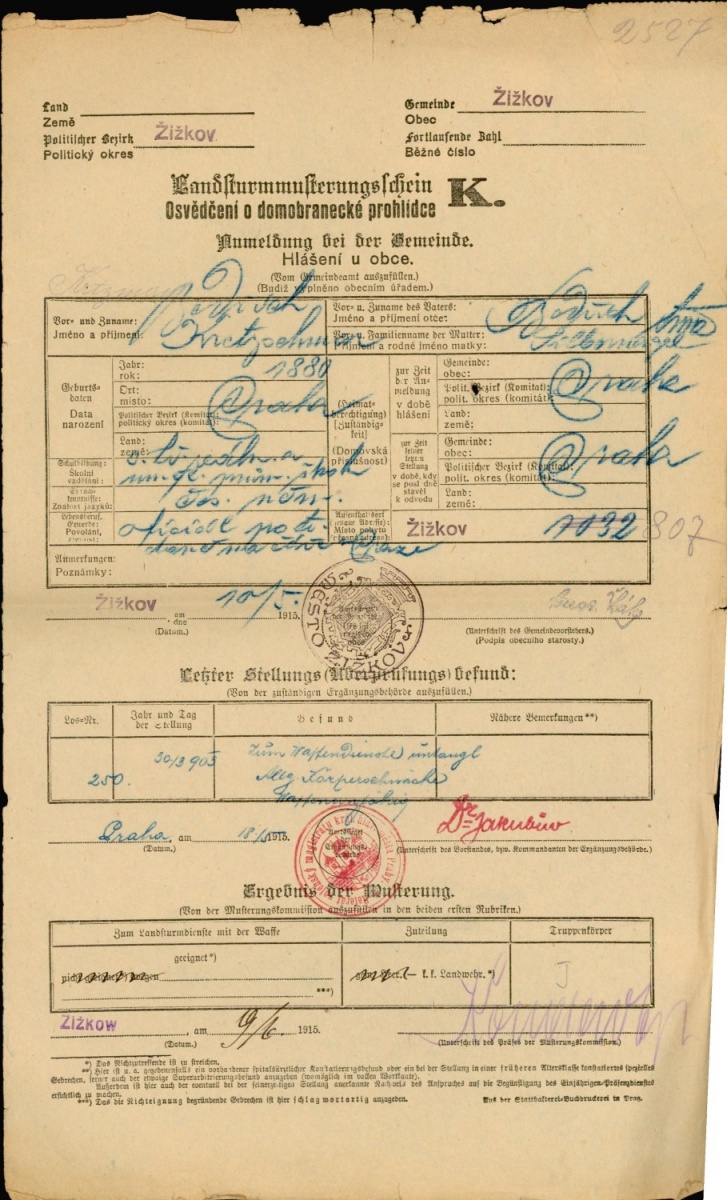 2527
Land
Země
Gemeinde Žižkov
Obec
Politischer Bezirk Žižkov
Politický okres
Fortlaufende Zahl
Běžné číslo
Landsturmmusterungsschein K.
Osvědčení o domobranecké prohlídce
Anmeldung bei der Gemeinde.
Hlášení u obce.
(Vom Gemeindeamt auszufüllen.)
(Budiž vyplněno obecním úřadem.)
Vor- und Zuname:
Jméno a příjmení:
Kretzschmar
Vor- u. Zuname des Vaters:
Jméno a příjmení otce:
Vor- u. Familienname der Mutter:
Příjmení a rodné jméno matky:
Geburts-
daten
Data
narození
Jahr:
rok: 1880
Ort:
místo: Praha
Politischer Bezirk (Komitat):
politický okres (komitát):
Land:
země:
(Heimat-
berechtigung)
[Zuständig-
keit]
(Domovská
příslušnost)
zur Zeit
der An-
meldung
v době
hlášení
Gemeinde:
obec: Praha
Polit. Bezirk (Komitat):
polit. okres (komitát):
Land:
země:
zur Zeit
seiner
letzten
Stellung
v době, kdy
se posl. dně
stavěl k
odvodu
Gemeinde:
obec: Praha
Politischer Bezirk (Komitat):
polit. okres (komitát):
Land:
země:
Schulbildung:
Školní
vzdělání:
Sprach-
kenntnisse:
Znalost jazyků:
čes. něm.
Lebensberuf,
Gewerbe:
Povolání,
Aufenthaltsort
(genaue Adresse):
Místo pobytu
(přesná adresa):
Žižkov 1032 807
Anmerkungen:
Poznámky:
Žižkov am 10/5. 1915.
dne
(Datum.)
MĚSTO ŽIŽKOV
(Unterschrift des Gemeindevorstehers.)
(Podpis obecního starosty.)
Letzter Stellungs(Überprüfungs)befund:
(Von der zuständigen Ergänzungsbehörde auszufüllen.)
Los-Nr.
Jahr und Tag
der Stellung
Befund
Nähere Bemerkungen**)
250.
30/3 905
Zum Waffendienste untaugl
Allg. Körperschwäche
Waffenunfähig
Praha am 18/5 1915.
(Datum.)
Dr Jakubův
(Unterschrift des Vorstandes, bzw. Kommandanten der Ergänzungsbehörde.)
Ergebnis der Musterung.
(Von der Musterungskommission auszufüllen in den beiden ersten Rubriken.)
Zum Landsturmdienste mit der Waffe
Zuteilung
Truppenkörper
geeignet*)
***)
k. k. Landwehr.*)
ŽIŽKOW, am 9/6. 1915.
(Datum.)
(Unterschrift des Präses der Musterungskommission.)
*) Das Nichtzutreffende ist zu streichen.
**) Hier ist u. a. gegebenenfalls ein vorhandener spitalsärztlicher Konstatierungsbefund oder ein bei der Stellung in einer früheren Altersklasse konstatiertes spezielles
Gebrechen, ferner auch der etwaige Superarbitrierungsbefund anzugeben (womöglich im vollen Wortlaute).
Außerdem ist hier auch der eventuell bei der seinerzeitigen Stellung anerkannte Nachweis des Anspruches auf die Begünstigung des Einjährigen-Präsenzdienstes
ersichtlich zu machen.
***) Das die Nichteignung begründende Gebrechen ist hier schlagwortartig anzugeben.
Aus der Statthalterei-Buchdruckerei in Prag.